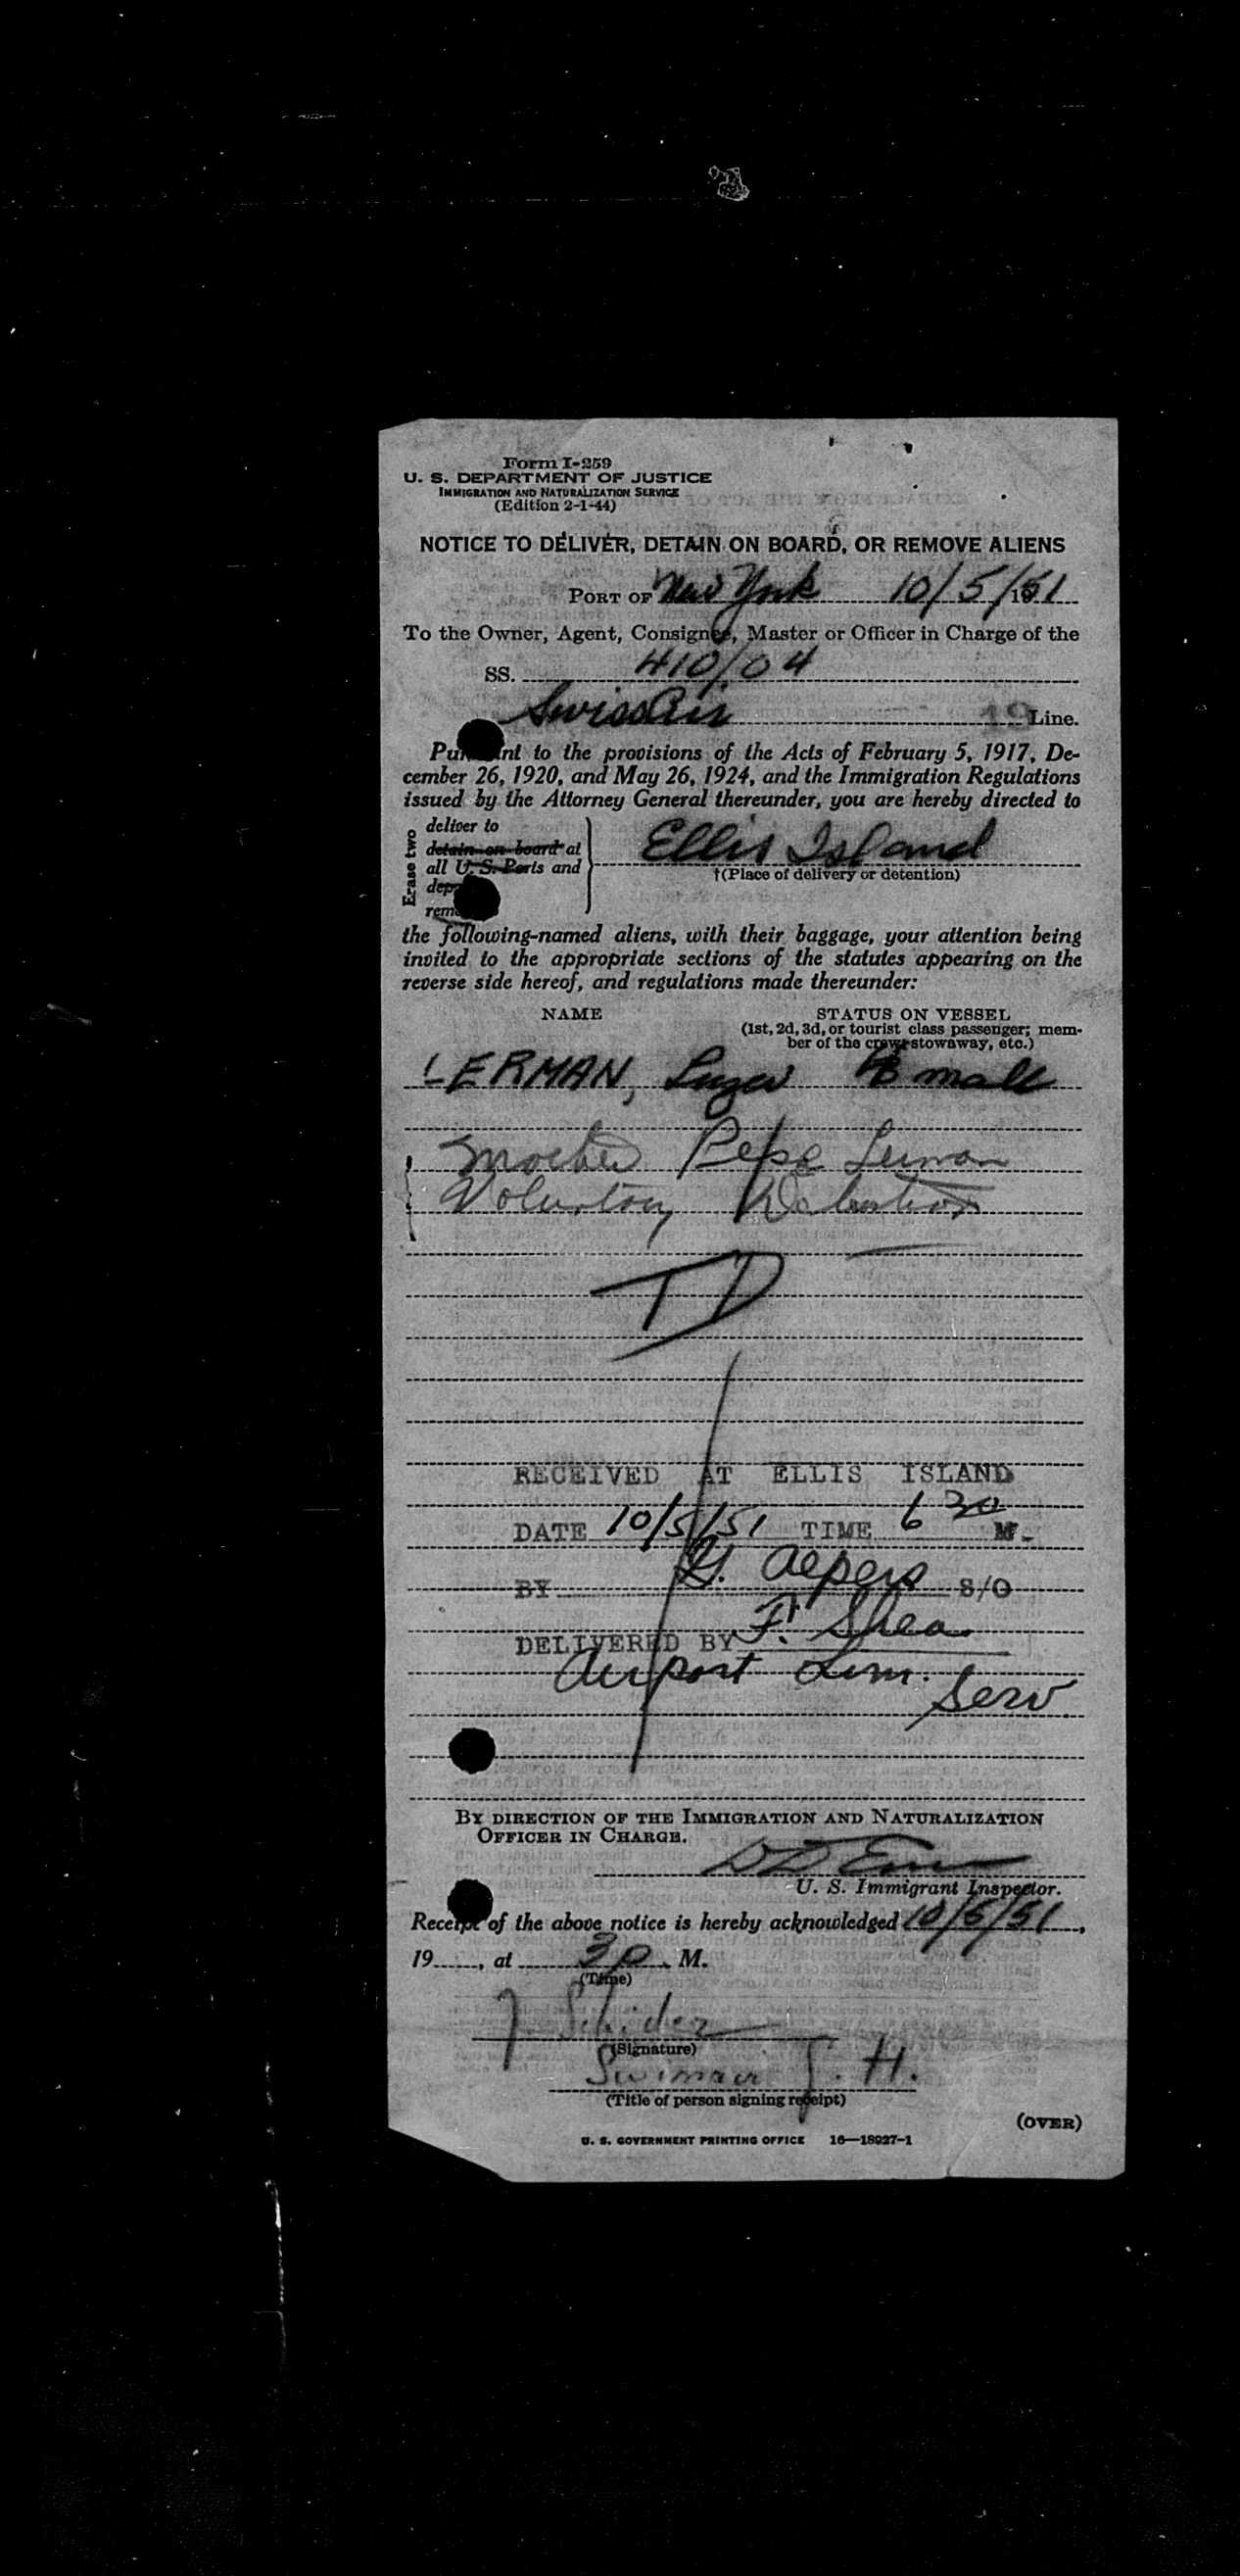 Form I-259
U. S. DEPARTMENT OF JUSTICE
IMMIGRATION AND NATURALIZATION SERVICE
(Edition 2-1-44)
NOTICE TO DELIVER, DETAIN ON BOARD, OR REMOVE ALIENS
PORT OF New York 10/5/1951
To the Owner, Agent, Consignee, Master or Officer in Charge of the
SS. 410/04
SwissAir 19 Line.
Pursuant to the provisions of the Acts of February 5, 1917, De-
cember 26, 1920, and May 26, 1924, and the Immigration Regulations
issued by the Attorney General thereunder, you are hereby directed to
Erase two
deliver to
detain on board at
all U. S. Ports and
Ellis Island
†(Place of delivery or detention)
the following-named aliens, with their baggage, your attention being
invited to the appropriate sections of the statutes appearing on the
reverse side hereof, and regulations made thereunder:
NAME STATUS ON VESSEL
(1st, 2d, 3d, or tourist class passenger; mem-
ber of the crew, stowaway, etc.)
LERMAN, male
Mother Pepe Lerman
Voluntary Detention
TD
RECEIVED AT ELLIS ISLAND
DATE 10/5/51 TIME 6 30 M.
BY Alpers S/O
DELIVERED BY F. Shea
Airport Lim. Serv
BY DIRECTION OF THE IMMIGRATION AND NATURALIZATION
OFFICER IN CHARGE.
U. S. Immigrant Inspector.
Receipt of the above notice is hereby acknowledged 10/5/51,
19, at 3 p. M.
(Time)
(Signature)
(Title of person signing receipt)
(OVER)
U. S. GOVERNMENT PRINTING OFFICE 16—18927-1